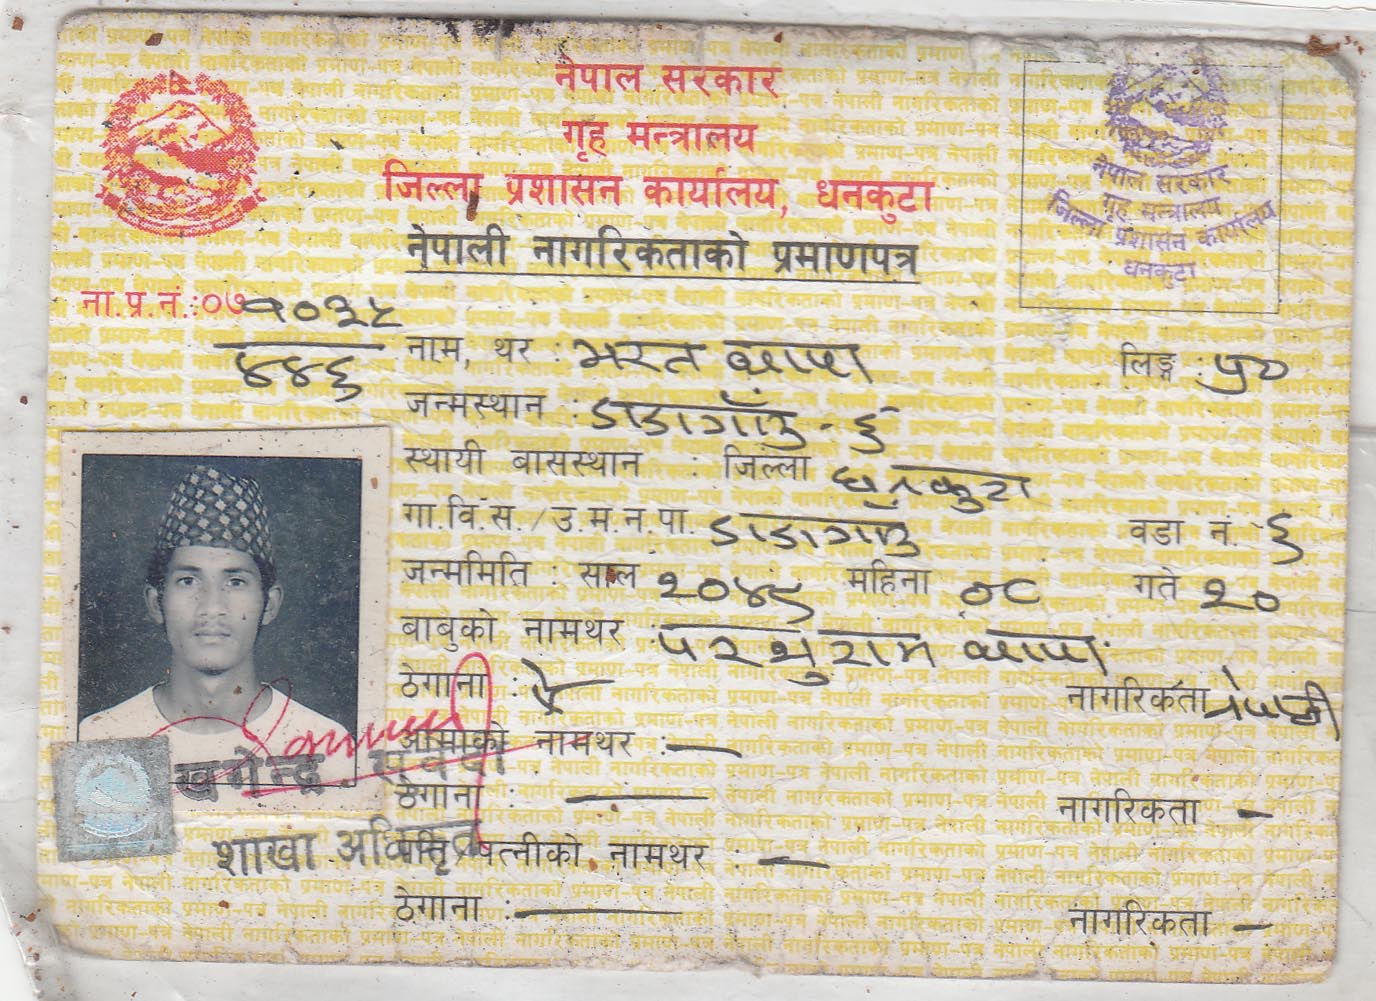 नेपाल सरकार
गृह मन्त्रालय
जिल्ला प्रशासन कार्यालय, धनकुटा
नेपाली नागरिकताको प्रमाणपत्र
नेपाल सरकार
गृह मन्त्रालय
जिल्ला प्रशासन कार्यालय
धनकुटा
ना.प्र.नं.:०७१०३५
४४६
नाम, थर : भरत थापा लिङ्ग :
जन्मस्थान : डाडागाँउ - ६
स्थायी बासस्थान : जिल्ला धनकुटा
गा.वि.स./उ.म.न.पा. डाडागाँउ वडा नं. ६
जन्ममिति : साल २०४९ महिना ०८ गते २०
बाबुको नामथर : परशुराम थापा
ठेगाना : ऐ नागरिकता नेपाली
आमाको नामथर : —
ठेगाना : — नागरिकता —
पत्नीको नामथर : —
ठेगाना : — नागरिकता —
खगेन्द्र
शाखा अधिकृत